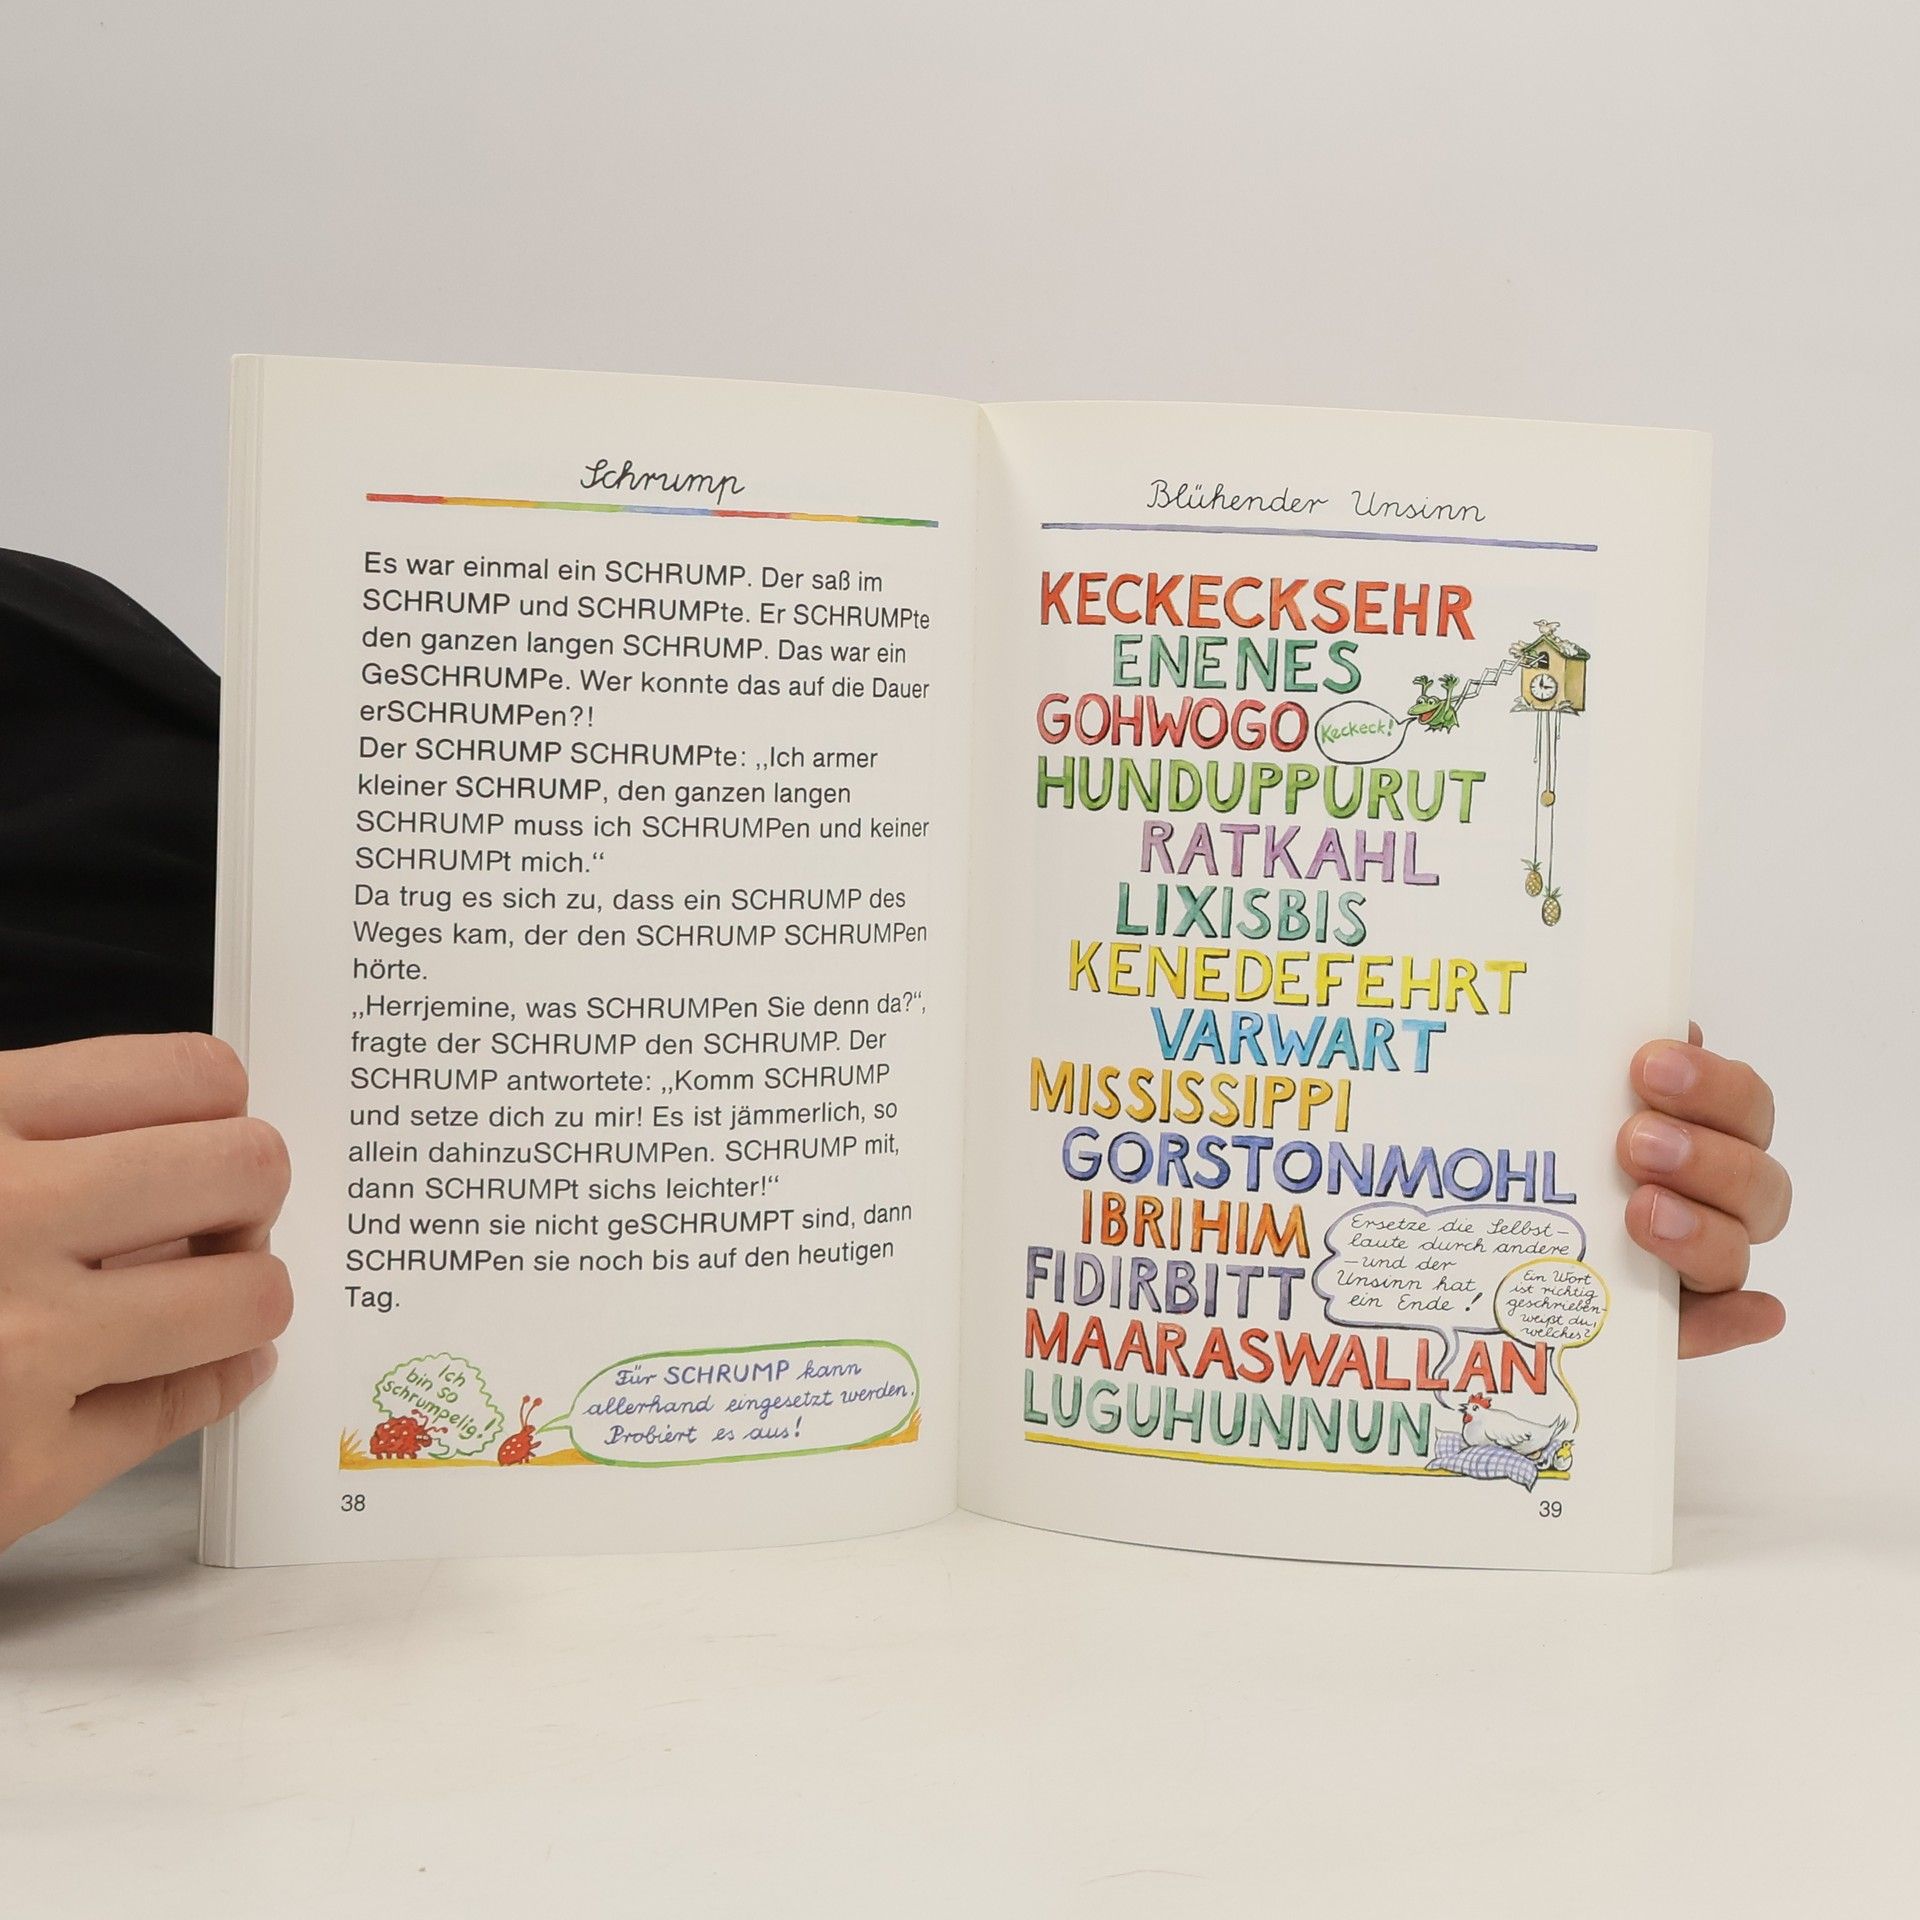 Schrump
Es war einmal ein SCHRUMP. Der saß im
SCHRUMP und SCHRUMPte. Er SCHRUMPte
den ganzen langen SCHRUMP. Das war ein
GeSCHRUMPe. Wer konnte das auf die Dauer
erSCHRUMPen?!
Der SCHRUMP SCHRUMPte: „Ich armer
kleiner SCHRUMP, den ganzen langen
SCHRUMP muss ich SCHRUMPen und keiner
SCHRUMPt mich.“
Da trug es sich zu, dass ein SCHRUMP des
Weges kam, der den SCHRUMP SCHRUMPen
hörte.
„Herrjemine, was SCHRUMPen Sie denn da?“,
fragte der SCHRUMP den SCHRUMP. Der
SCHRUMP antwortete: „Komm SCHRUMP
und setze dich zu mir! Es ist jämmerlich, so
allein dahinzuSCHRUMPen. SCHRUMP mit,
dann SCHRUMPt sichs leichter!“
Und wenn sie nicht geSCHRUMPT sind, dann
SCHRUMPen sie noch bis auf den heutigen
Tag.
Ich
bin so
schrumpelig!
Für SCHRUMP kann
allerhand eingesetzt werden.
Probiert es aus!
38
Blühender Unsinn
KECKECKSEHR
ENENES
GOHWOGO
Keckeck!
HUNDUPPURUT
RATKAHL
LIXISBIS
KENEDEFEHRT
VARWART
MISSISSIPPI
GORSTONMOHL
IBRIHIM
FIDIRBITT
MAARASWALLAN
LUGUHUNNUN
Ersetze die Selbst-
laute durch andere
– und der
Unsinn hat
ein Ende!
Ein Wort
ist richtig
geschrieben-
weißt du,
welches?
39